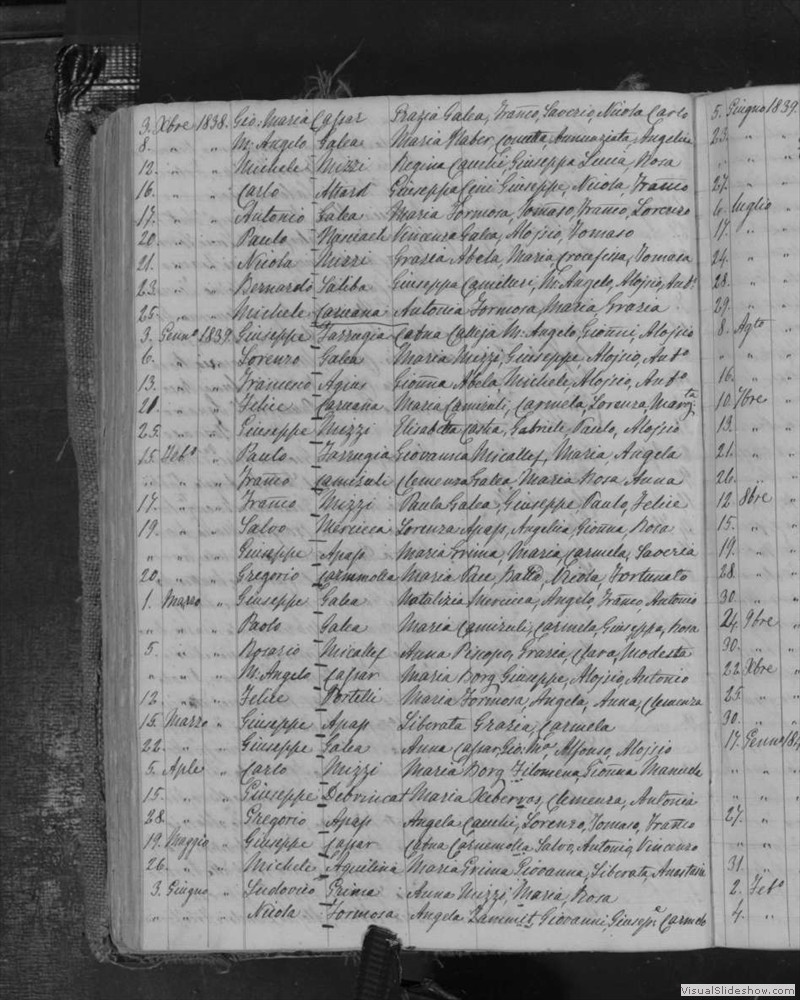 3. Xbre 1838. Gio. Maria Cassar Grazia Galea, Franco, Saverio, Nicola Carlo 5. Giugno 1839.
8. " " M. Angelo Galea Maria Annunziata, Angelica 23. " "
12. " " Michele Mizzi Regina Cauchi, Giuseppa Lucia, Rosa " " "
16. " " Carlo Attard Giuseppa Cini Giuseppe, Nicola, Franco 27. " "
17. " " Antonio Galea Maria Formosa, Tomaso, Franco, Lorenzo 6. Luglio "
20. " " Paulo Vincenza Galea, Aloisio, Tomaso 17. " "
21. " " Nicola Mizzi Grazia Abela, Maria Crocefissa, Tomasa 24. " "
23. " " Bernardo Saliba Giuseppa M. Angelo, Aloisio, Ando 28. " "
25. " " Michele Caruana Antonia Formosa, Maria, Grazia 29. " "
3. Genno 1839 Giuseppe Farrugia Catna Calleja M. Angelo, Gionni, Aloisio 8. Agto "
6. " " Lorenzo Galea Maria Mizzi, Giuseppe, Aloisio, Ando " " "
13. " " Francesco Agius Gionna Abela, Michele, Aloisio, Ando 16. " "
21. " " Felice Caruana Maria Camisuli, Carmela, Lorenza, Margta 10. 7bre "
25. " " Giuseppe Mizzi Elisabetta Gabriele, Paulo, Aloisio 13. " "
15. Febo " Paulo Farrugia Giovanna Micallef, Maria, Angela 21. " "
" " " Franco Camisuli Clemenza Galea, Maria Rosa Anna 26. " "
17. " " Franco Mizzi Paula Galea, Giuseppe, Paulo, Felice 12. 8bre "
19. " " Salvo Mercieca Lorenza Apap, Angelica, Gionna, Rosa 15. " "
" " " Giuseppe Apap Maria Prima, Maria, Carmela, Saveria 19. " "
20. " " Gregorio Carnemolla Maria Pace, Nicola, Fortunato 28. " "
1. Marzo " Giuseppe Galea Natalizia Mercieca, Angelo, Franco, Antonio 30. " "
" " " Paolo Galea Maria Camisuli, Carmela, Giuseppa, Rosa 24. 9bre "
5. " " Rosario Micallef Anna Piscopo, Grazia, Clara, Modesta 30. " "
" " " M. Angelo Cassar Maria Borg Giuseppe, Aloisio, Antonio 22. Xbre "
12. " " Felice Portelli Maria Formosa, Angela, Anna, Clemenza 25. " "
15. Marzo " Giuseppe Apap Liberata Grazia, Carmela 30. " "
22. " " Giuseppe Galea Anna Cassar, Gio. Ma Alfonso, Aloisio 17. Genno 184
5. Aple " Carlo Mizzi Maria Borg Filomena, Gionna Manuele " " "
15. " " Giuseppe Debrincat Maria Clemenza, Antonia " " "
28. " " Gregorio Apap Angela Cauchi, Lorenzo, Tomaso, Franco 27. " "
19. Maggio " Giuseppe Cassar Catna Carnemolla Salvo, Antonio, Vincenzo " " "
26. " " Michele Aquilina Maria Prima Giovanna, Liberata, Anastasia 31. " "
3. Giugno " Ludovico Prima Anna Mizzi, Maria, Rosa 2. Febo "
" " " Nicola Formosa Angela Zammit, Giovanni, Giuseppe Carmelo 4. "
VisualSlideshow.com